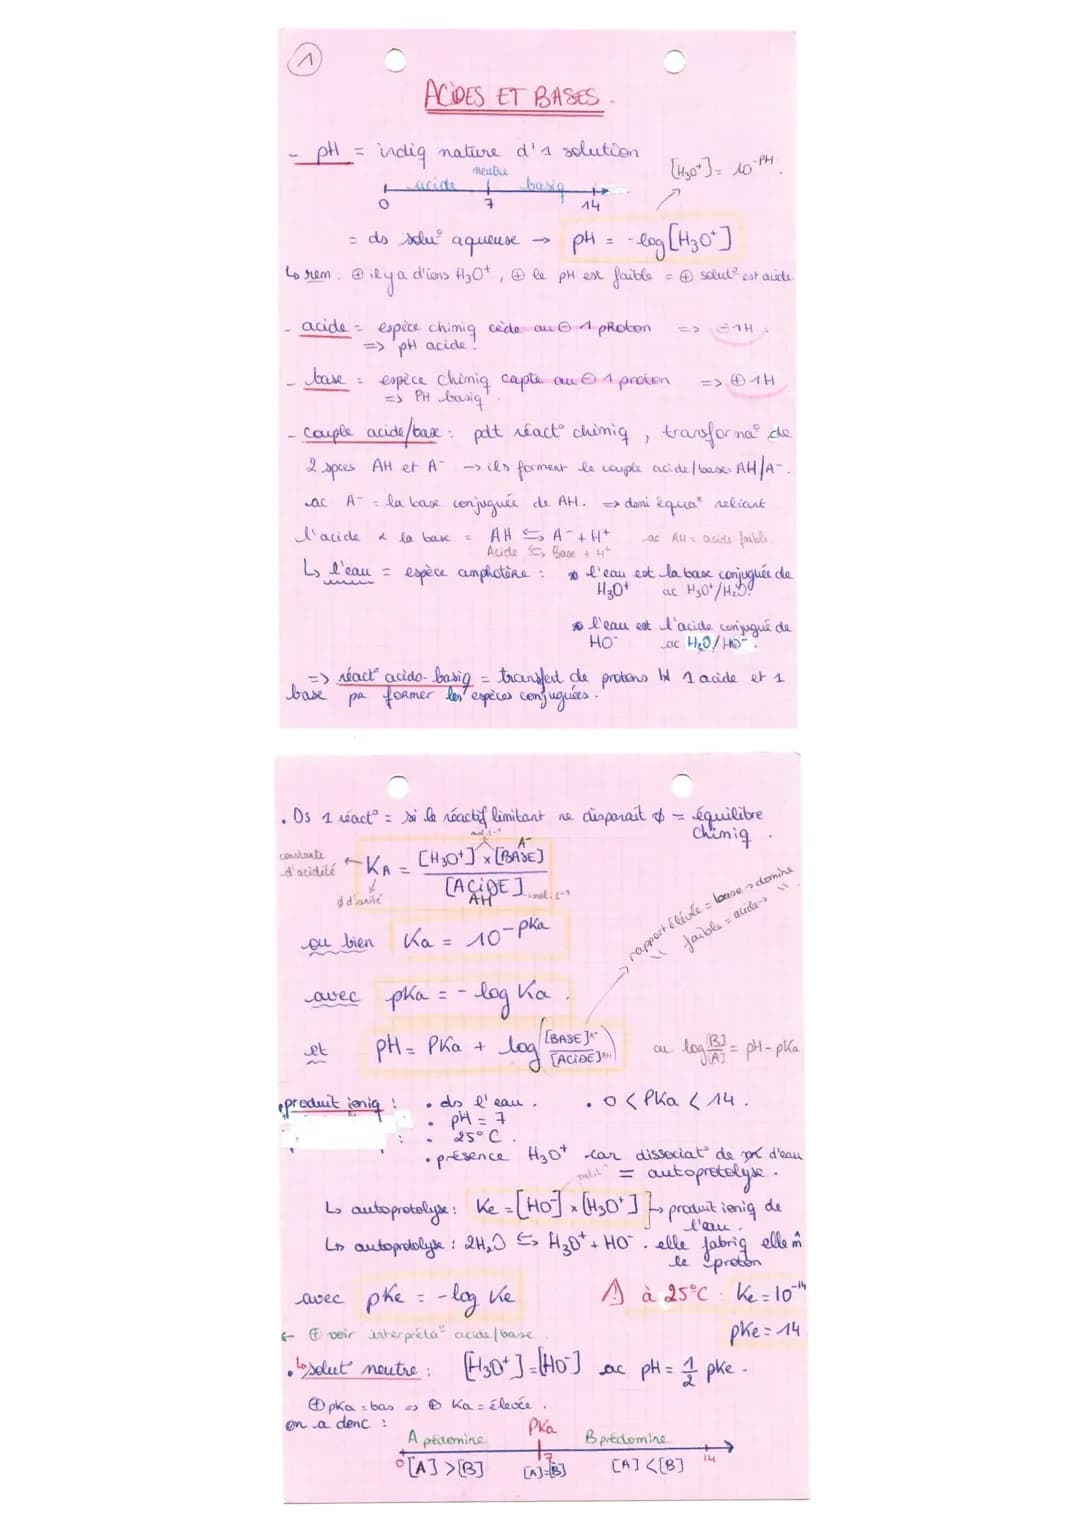 1
ACIDES ET BASES.
- pH = indiq nature d'1 solution
[H3O+] = 10-PH.
neutre
acide basiq
0 7 14
= ds solu° aqueuse → pH = -log [H3O+]
↳ rem : ⊕ il y a d'ions H3O+, ⊕ le pH est faible = ⊕ solut° est acide
- acide = espèce chimiq cède au ⊖ 1 pRoton => ⊖ 1H.
=> pH acide.
- base : espèce chimiq capte au ⊖ 1 proton => ⊕ 1H
=> PH basiq.
- couple acide/base : pdt réact° chimiq, transforma° de
2 spces AH et A- → ils forment le couple acide/base AH/A-.
ac A- = la base conjuguée de AH. => demi équa° reliant
l'acide & la base = AH ⇆ A- + H+ ac AH = acide faible.
Acide ⇆ Base + H+
↳ l'eau = espèce amphotère : * l'eau est la base conjuguée de
H3O+ ac H3O+/H2O.
* l'eau est l'acide conjugué de
HO- ac H2O/HO-.
=> réact° acido-basiq = transfert de protons 1 acide et 1
base pr former les espèces conjuguées.
. Ds 1 réact° = si le réactif limitant ne disparait ∅ = équilibre
chimiq.
mol.L-1
constante d'acidité ← KA = [H3O+] × [BASE] A-
[ACIDE] mol.L-1
AH
∅ d'unité
rapport élevée = base → domine
" faible = acide → ".
ou bien Ka = 10-pKa
avec pKa = - log Ka.
et pH = PKa + log ([BASE]A- / [ACIDE]AH) ou log [B]/[A] = pH - pKa
. produit ioniq : . ds l'eau. . 0 < PKa < 14.
. pH = 7
: . 25°C.
. présence H3O+ car dissociat° de d'eau
mol.L-1 = autoprotolyse.
↳ autoprotolyse : Ke = [HO-] × [H3O+] → produit ioniq de
l'eau.
↳ autoprotolyse : 2H2O ⇆ H3O+ + HO-. elle fabriq elle m̂
le proton
avec pKe = -log Ke ⚠ à 25°C : Ke = 10-14
pKe = 14
← ⊕ voir interpréta° acide/base
. ↳ solut° neutre : [H3O+] = [HO-] ac pH = 1/2 pKe.
⊕ pKa = bas => ⊕ Ka = élevée.
on a donc :
A prédomine PKa B prédomine
0 7 14
[A] > [B] [A]=[B] [A] < [B]